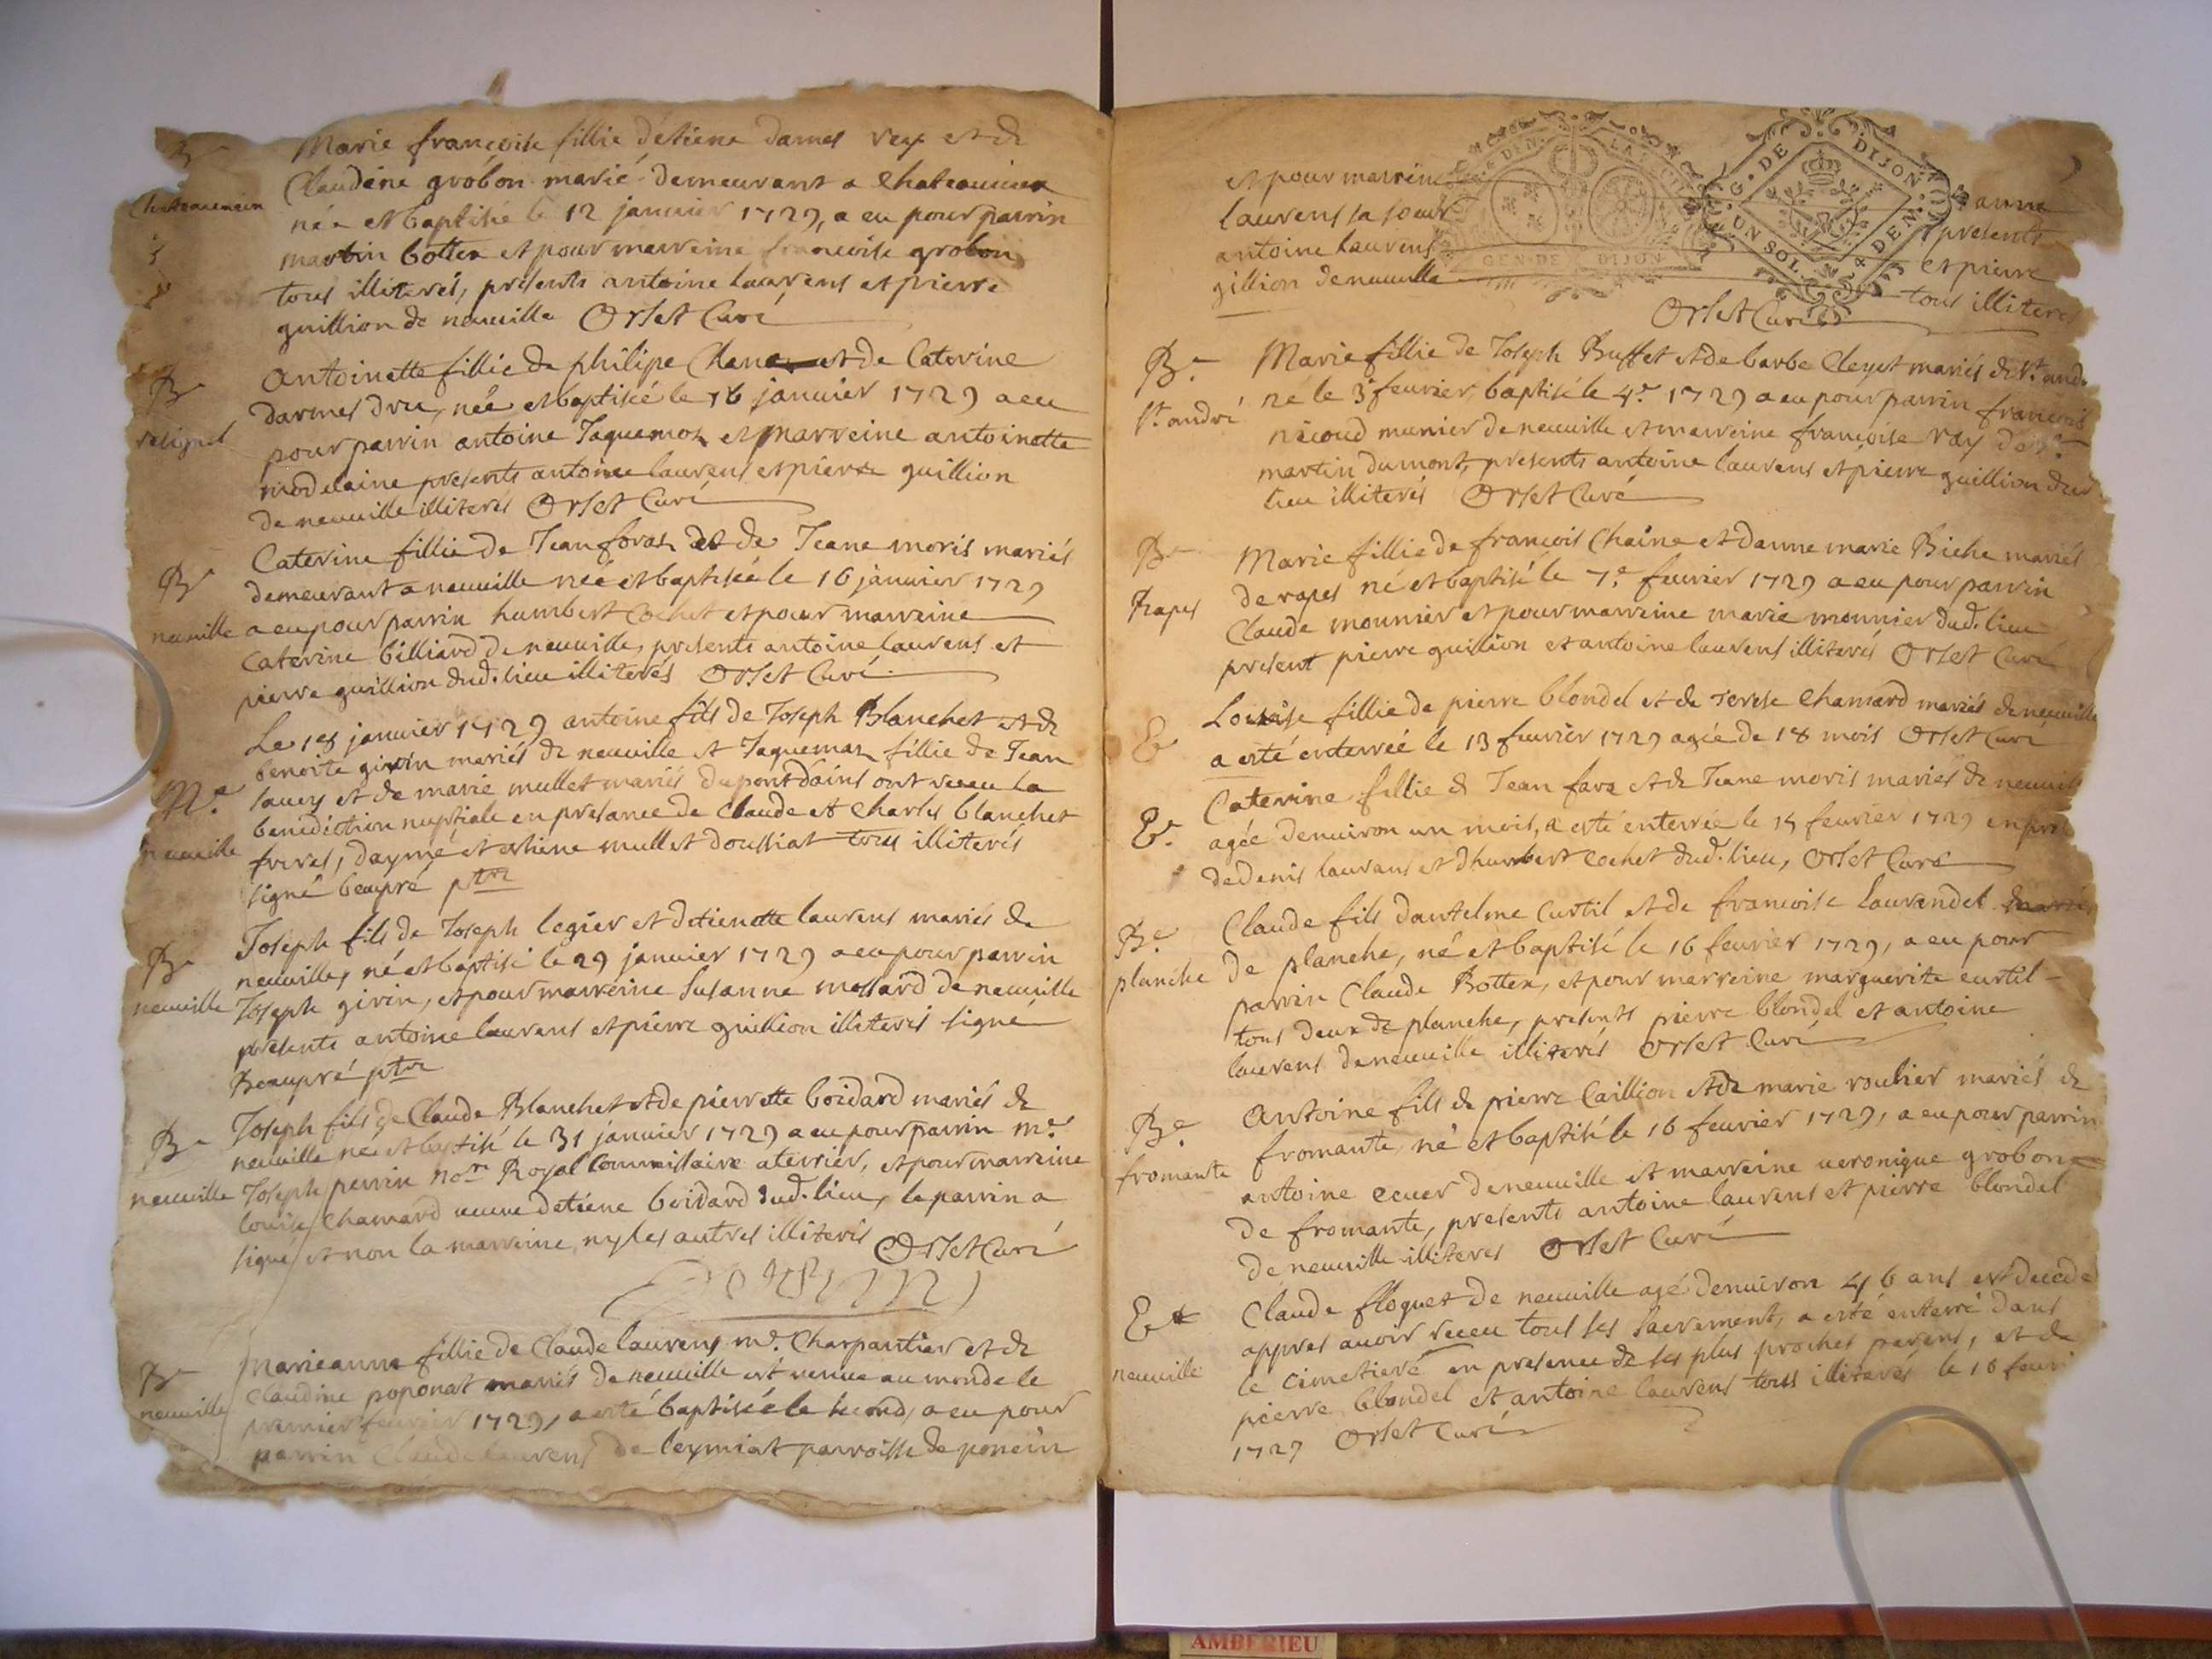 Be
Marie françoise fillie détiene dames rey et de
Claudine grôbon marié demeurant a Chateauvieux
Chateauvieux
née et baptisée le 12 janvier 1729, a eu pour parrin
martin bottex et pour marreine francoise grobon
tous illiterés, présents antoine laurens et pierre
guillion de neuville Orset Curé
Be
Antoinette fillie de philipe Chanez et de Caterine
darmes dru, née et baptisée le 16 janvier 1729 a eu
pour parrin antoine Jaquemoz et marreine antoinette
modelaine presents antoine laurens et pierre guillion
de neuville illiterés Orset Curé
Be
Caterine fillie de Jean foraz et de Jeane moris mariés
demeurant a neuville née et baptisée le 16 janvier 1729
neuville
a eu pour parrin humbert Cochet et pour marreine
Caterine billiard de neuville, presents antoine laurens et
pierre guillion dud. lieu illiterés Orset Curé
Le 18 janvier 1729 antoine fils de Joseph Blanchet et de
benoite girin mariés de neuville et Jaquemaz fillie de Jean
Me
laury et de marie mullet mariés du pont dains ont receu la
benediction nuptiale en presance de Claude et Charles blanchet
neuville
freres, daymé et mullet doussiat tous illiterés
signé beaupré ptre
Be
Joseph fils de Joseph legier et detienette laurens mariés de
neuville, né et baptisé le 29 janvier 1729 a eu pour parrin
neuville
Joseph girin, et pour marreine Susanne mossard de neuville
présents antoine laurens et pierre guillion illiterés signé
Beaupré ptre
Be
Joseph fils de Claude Blanchet et de pierrette boidard mariés de
neuville né et baptisé le 31 janvier 1729 a eu pour parrin me.
neuville
Joseph perrin nore Royal Commissaire aterrier, et pour marreine
louise Chamard veuve detiene boidard dud. lieu, le parrin a
signé et non la marreine, ny les autres illiterés Orset Curé
perrin
Be
Marieanne fillie de Claude laurens me. Charpantier et de
neuville
Claudine poponat mariés de neuville est venue au monde le
premier fevrier 1729, a esté baptisée le second, a eu pour
parrin Claude laurens de leymiat parroisse de poncin
et pour marreine anne
laurens sa soeur presents
antoine laurens et pierre
gillion de neuville tous illiterés
Orset Curé
GEN. DE DIJON
G. DE DIJON
UN SOL. 4 DEN.
Be.
Marie fillie de Joseph Buffet et de barbe Cleyet mariés de St. andr
St. andré
né le 3e fevrier, baptisé le 4e. 1729 a eu pour parrin francois
nicoud munier de neuville et marreine françoise ray de St.
martin du mont, presents antoine laurens et pierre guillion dud
lieu illiterés Orset Curé
Be
Marie fillie de francois Chaîne et danne marie Biche mariés
Rapes
de rapes né et baptisé le 7e. fevrier 1729 a eu pour parrin
Claude monnier et pour marreine marie monnier dud. lieu
present pierre guillion et antoine laurens illiterés Orset Curé
E
Louise fillie de pierre blondel et de Terese Chamard mariés de neuville
a esté enterrée le 13 fevrier 1729 agée de 18 mois Orset Curé
Ee.
Caterine fillie de Jean foraz et de Jeane moris mariés de neuvill
agée denviron un mois, a esté enterrée le 15 fevrier 1729 en pres
de denis laurans et dhumbert cochet dud. lieu, Orset Curé
Be
planche
Claude fils dantelme Curtil et de francoise Laurendel mariés
de planche, né et baptisé le 16 fevrier 1729, a eu pour
parrin Claude Bottex, et pour marreine marguerite curtil
tous deux de planche, presents pierre blondel et antoine
laurens de neuville illiterés Orset Curé
Be
fromante
Antoine fils de pierre Caillion et de marie roulier mariés de
fromante, né et baptisé le 16 fevrier 1729, a eu pour parrin
antoine ecuer de neuville et marreine veronique grobon
de fromante, presents antoine laurens et pierre blondel
de neuville illiteres Orset Curé
Ee
neuville
Claude floquet de neuville agé denviron 46 ans est decede
appres avoir receu tous ses sacrement, a esté enterré dans
le cimetiere en presence de ses plus proches parens, et de
pierre blondel et antoine laurens tous illiterés le 16 fevri
1729 Orset Curé
AMBERIEU